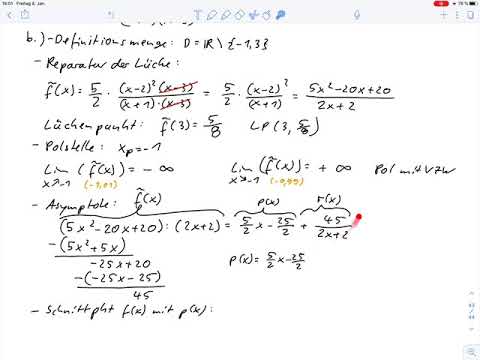 16:01 Freitag 8. Jan.
78 %
b.) - Definitionsmenge: D = ℝ \ {-1, 3}
- Reparatur der Lücke:
f̃(x) = 5/2 · (x-2)²(x-3) / (x+1)·(x-3) = 5/2 · (x-2)²/(x+1) = (5x²-20x+20)/(2x+2)
Lückenpunkt: f̃(3) = 5/8 LP(3, 5/8)
- Polstelle: xₚ = -1
Lim x→-1 (f̃(x)) = -∞ Lim x→-1 (f̃(x)) = +∞ Pol mit VZW
(-1,01) (-0,99)
- Asymptote: f̃(x) p(x) r(x)
(5x²-20x+20) : (2x+2) = 5/2 x - 25/2 + 45/(2x+2)
-(5x²+5x)
-25x+20 p(x) = 5/2 x - 25/2
-(-25x-25)
45
- Schnittpkt f(x) mit p(x):